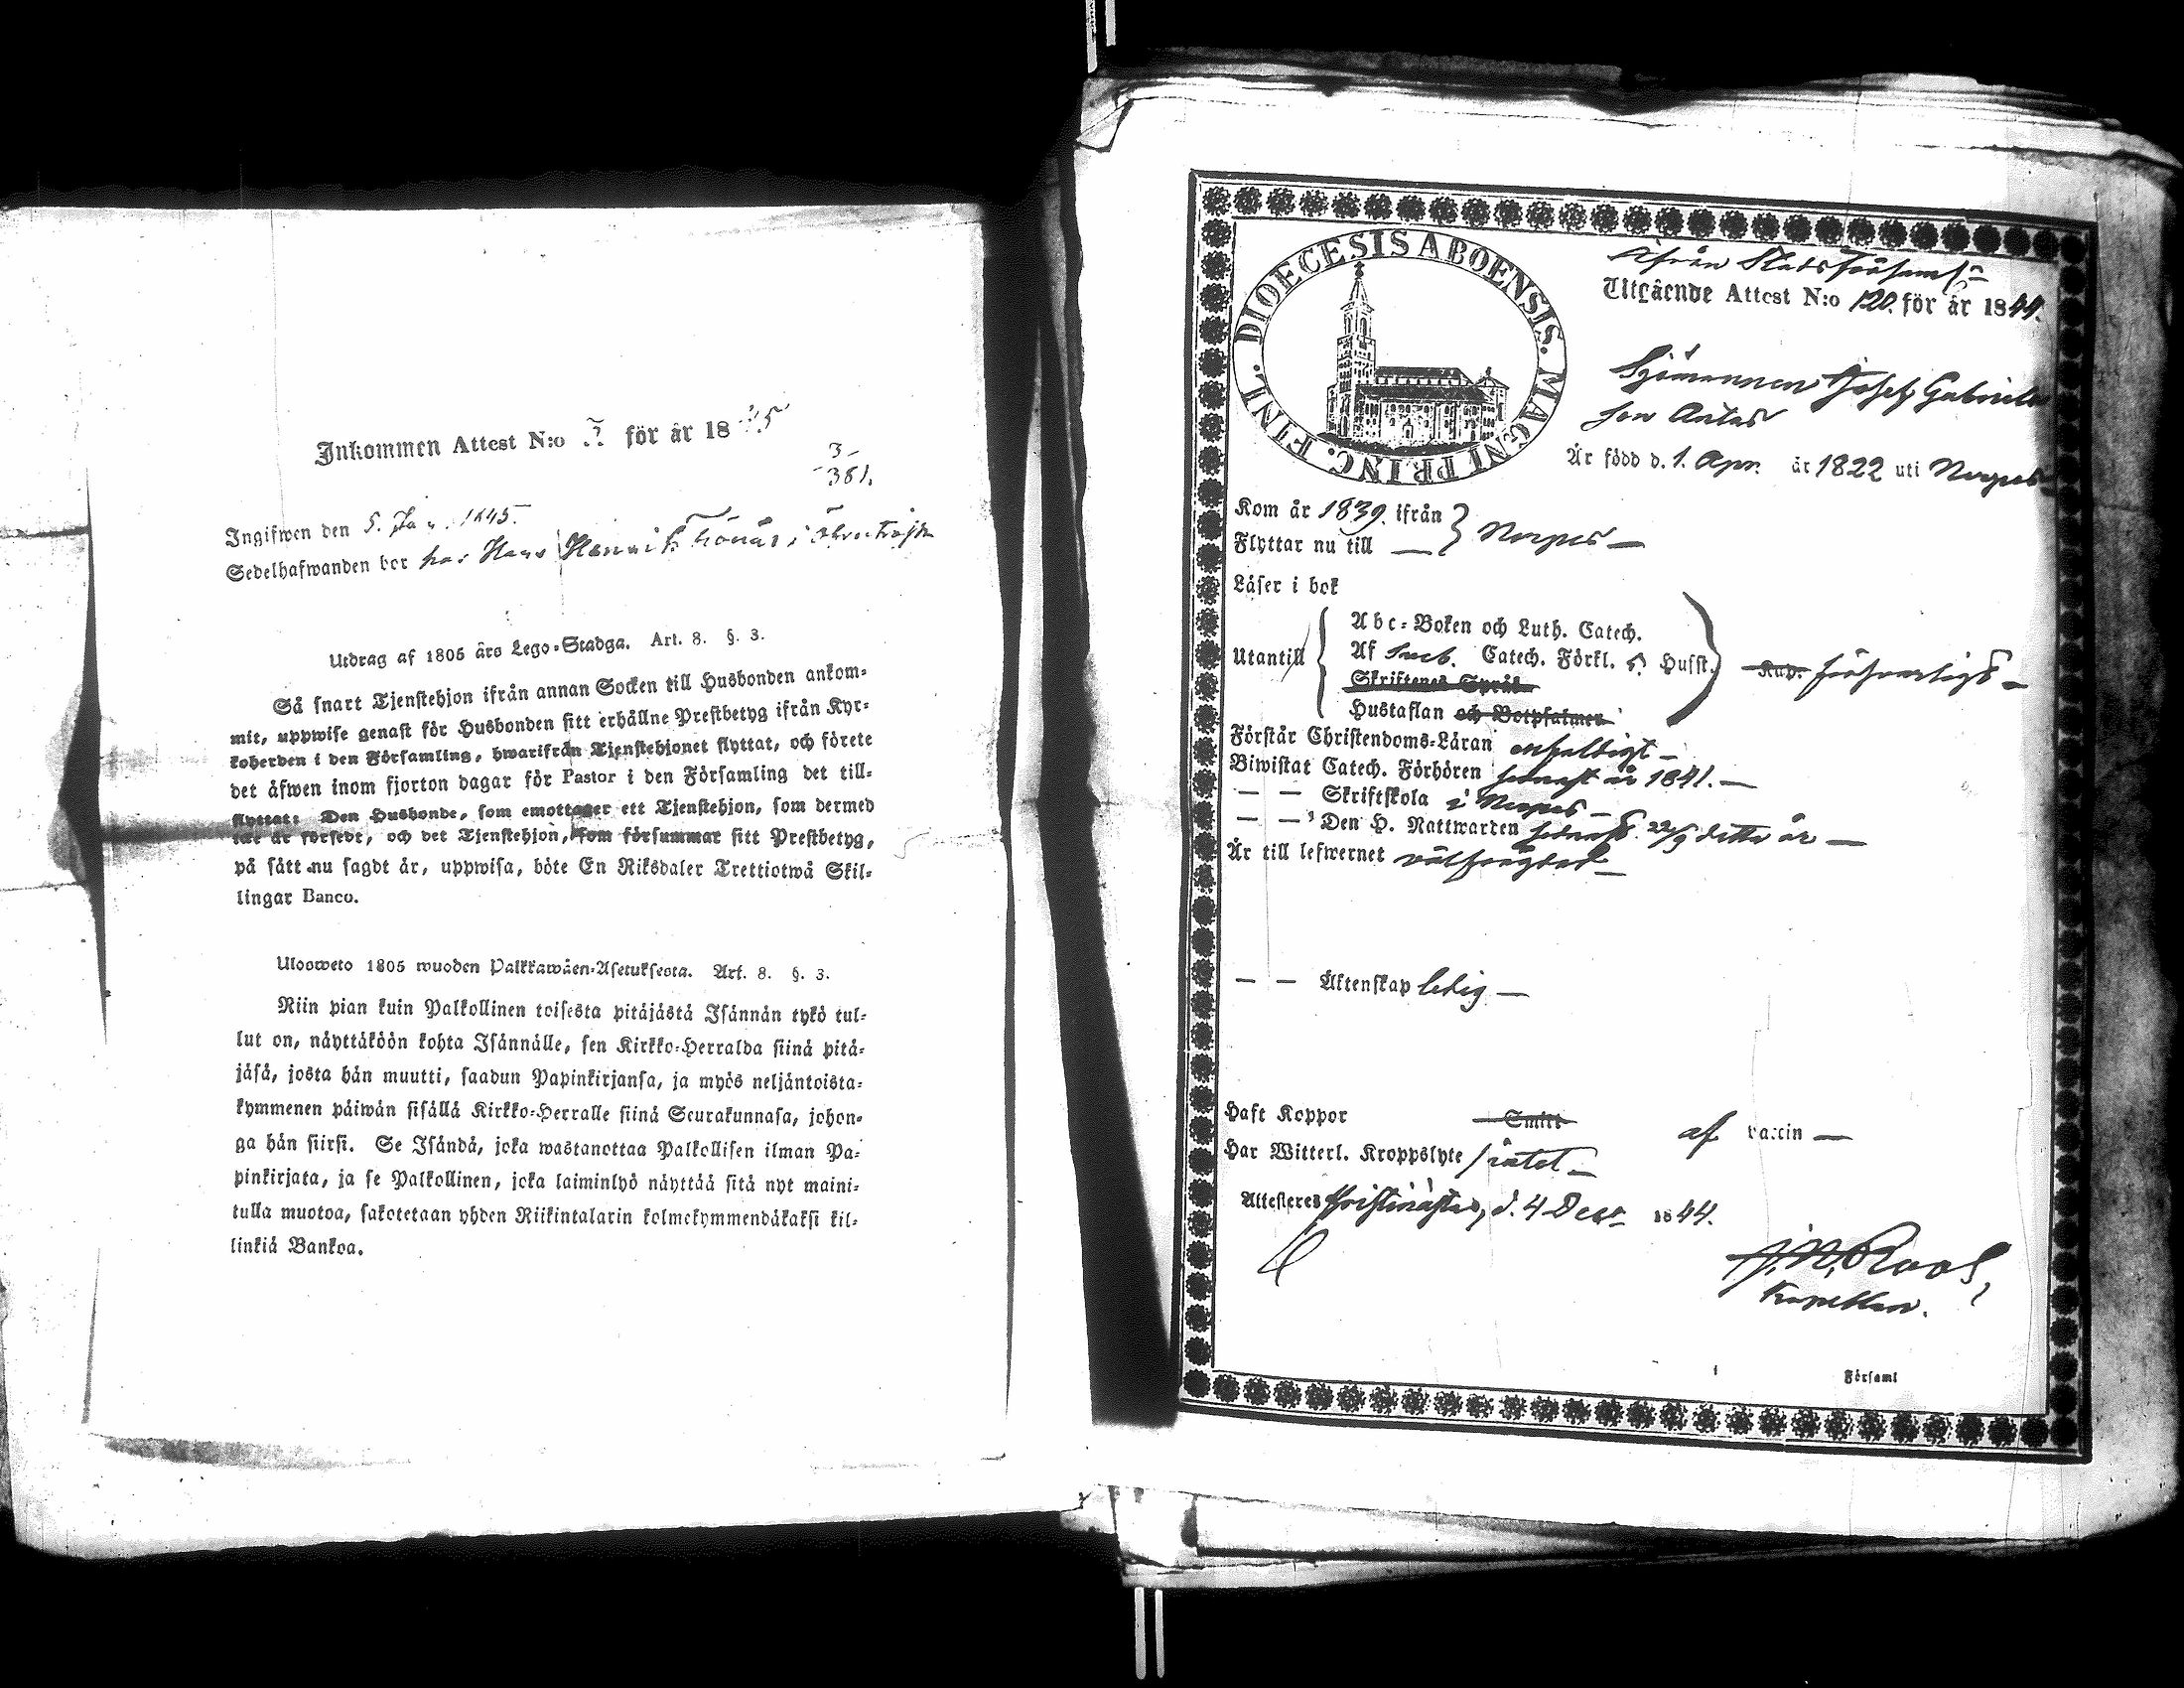 Inkommen Attest N:o 3. för år 1845
3
381.
Ingifwen den 5. Jan. 1845.
Sedelhafwanden bor hos Hans Henrik i
Utdrag af 1805 års Lego-Stadga. Art. 8. §. 3.
Så snart Tjenstehjon ifrån annan Socken till Husbonden ankom-
mit, uppwise genast för Husbonden sitt erhållne Prestbetyg ifrån Kyr-
koherden i den Församling, hwarifrån Tjenstehjonet flyttat, och förete
det äfwen inom fjorton dagar för Pastor i den Församling det till-
flyttat: Den Husbonde, som emottager ett Tjenstehjon, som dermed
icke är försedt, och det Tjenstehjon, som försummar sitt Prestbetyg,
på sätt nu sagdt är, uppwisa, böte En Riksdaler Trettiotwå Skil-
lingar Banco.
Uloosweto 1805 wuoden Palkkawäen-Asetuksesta. Art. 8. §. 3.
Niin pian kuin Palkollinen toisesta pitäjästä Isännän tykö tul-
lut on, näyttäköön kohta Isännälle, sen Kirkko-Herralda siinä pitä-
jäsä, josta hän muutti, saadun Papinkirjansa, ja myös neljäntoista-
kymmenen päiwän sisällä Kirkko-Herralle siinä Seurakunnasa, johon-
ga hän siirsi. Se Isändä, joka wastanottaa Palkollisen ilman Pa-
pinkirjata, ja se Palkollinen, joka laiminlyö näyttää sitä nyt maini-
tulla muotoa, sakotetaan yhden Riikintalarin kolmekymmendäkaksi kil-
linkiä Bankoa.
DIOECESIS ABOENSIS. MAGNI PRINC. FINL.
Ifrån Stadsförsaml:
Utgående Attest N:o 120. för år 1844.
Sjömannen Josef Gabriels
son Antas
Är född d. 1. Apr. år 1822 uti Nerpes
Kom år 1839. ifrån
Flyttar nu till — } Nerpes —
Läser i bok
Abc-Boken och Luth. Catech.
Utantill Af Sveb. Catech. Förkl. S. Husst. Kap. försvarligt —
Skriftenes Språk
Hustaflan och Botpsalmer
Förstår Christendoms-Läran enfaldigt —
Biwistat Catech. Förhören senast år 1841. —
— — Skriftskola i Nerpes —
— — Den H. Nattwarden senast 22/9 detta år —
Är till lefwernet välfrägdad —
— — Äktenskap ledig —
Haft Koppor Smitt af vaccin —
Har Witterl. Kroppslyte intet —
Attesteres Kristinæstad, d. 4 Decr 1844.
J. W. Roos,
Kapellan.
Församl